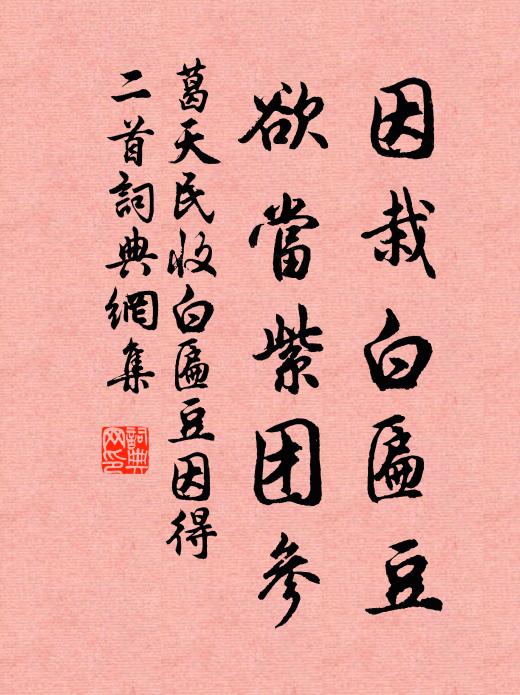 因栽白匾豆
欲當紫团參
葛天民收白匾豆因得
二首詞典網集
詞典網印